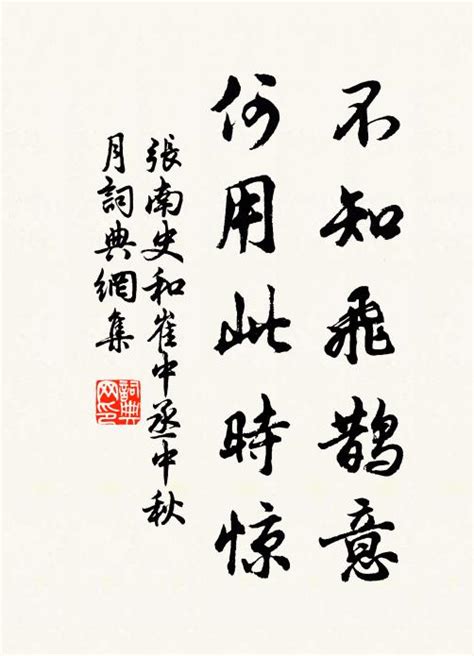 不知飛鹊意
何用此時惊
張南史和崔中丞中秋
月詞典網集
詞典
网印